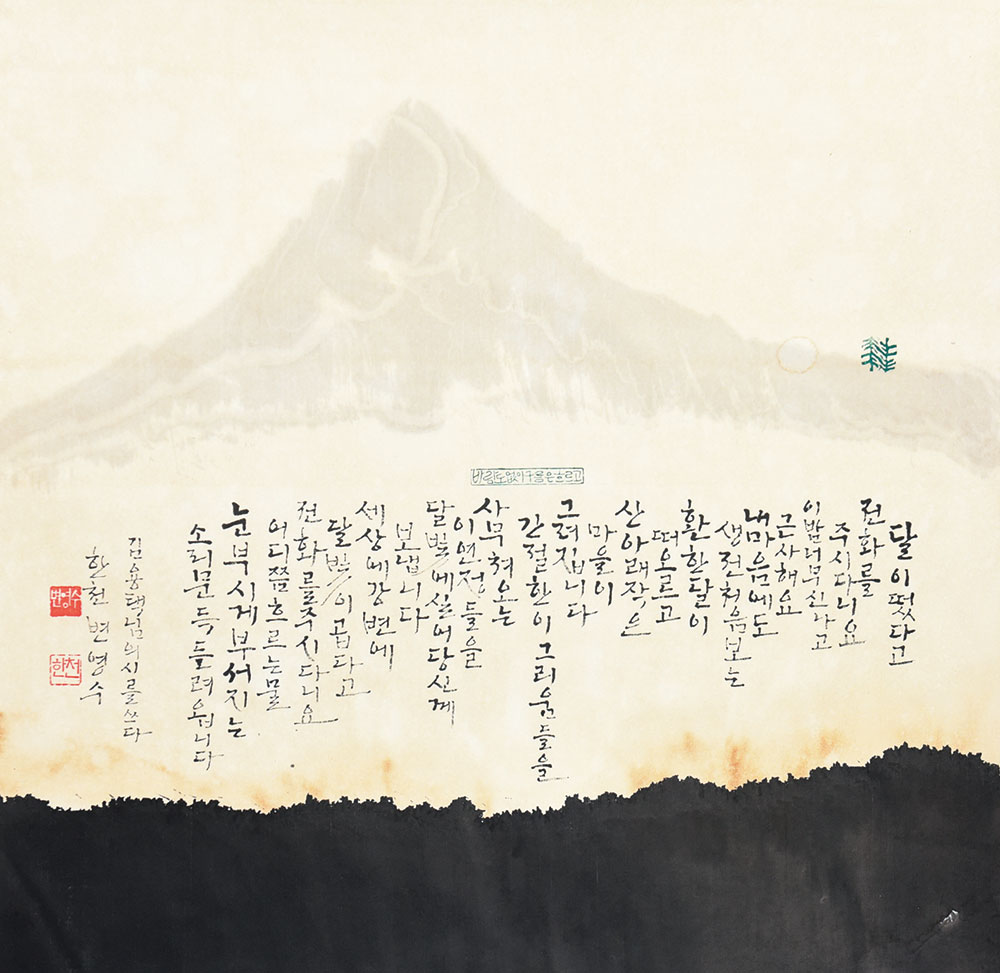 바람도없이구름은흐르고
달이떴다고
전화를
주시다니요
이밤너무신나고
근사해요
내마음에도
생전처음보는
환한달이
떠오르고
산아래작은
마을이
그려집니다
간절한이그리움들을
사무쳐오는
이연정들을
달빛에실어당신께
보냅니다
세상에강변에
달빛이곱다고
전화를주시다니요
어디쯤흐르는물
눈부시게부서지는
소리문득들려옵니다
김용택님의시를쓰다
한천 변영수
변영수
한천